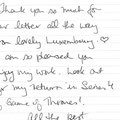 Thank you so much for
ur letter all the way
om lovely Luxembourg ♡
am so pleased you
joy my work. Look out
r my return in Series 4
f Game of Thrones!.
All the best